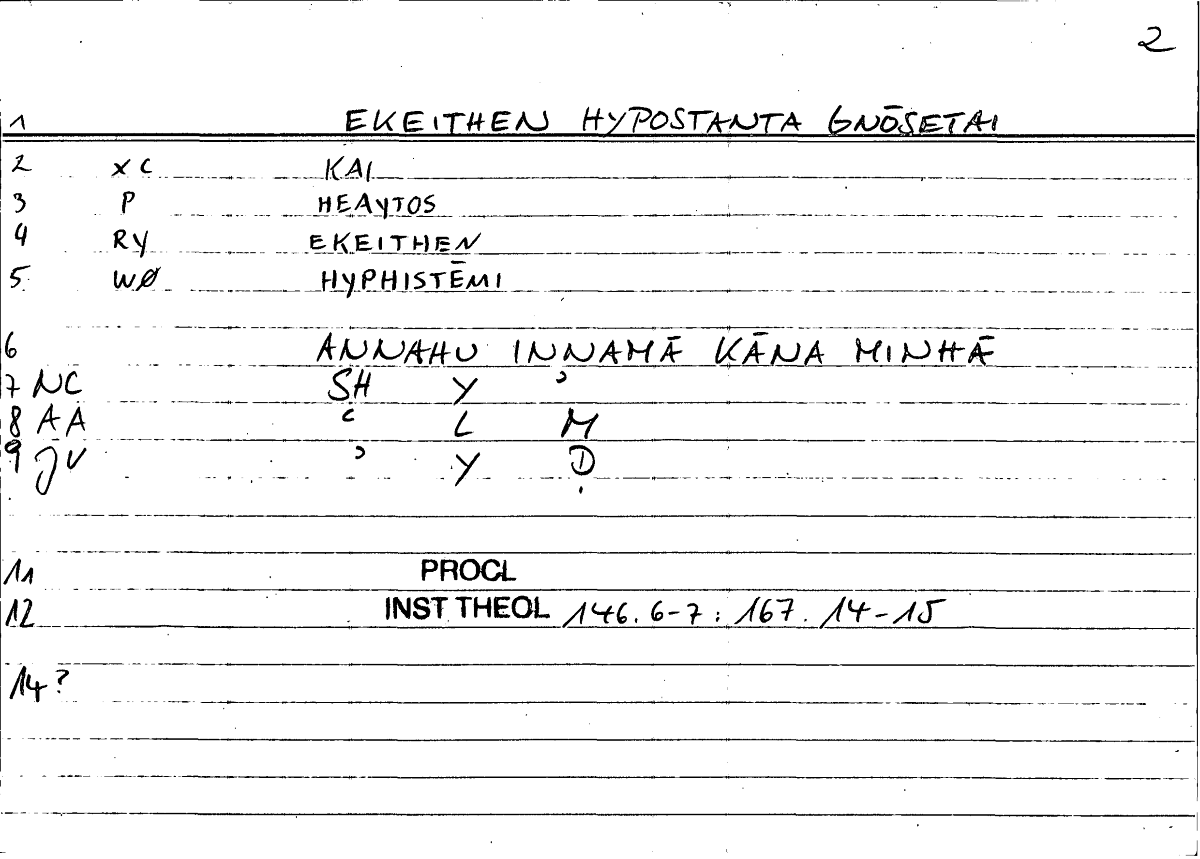 2
1 EKEITHEN HYPOSTANTA GNŌSETAI
2 XC KAI
3 P HEAYTOS
4 RY EKEITHEN
5 WØ HYPHISTĒMI
6 ANNAHU INNAMĀ KĀNA MINHĀ
7 NC SH Y ʾ
8 AA ʿ L M
9 JV ʾ Y Ḍ
11 PROCL
12 INST THEOL 146.6-7: 167.14-15
14?